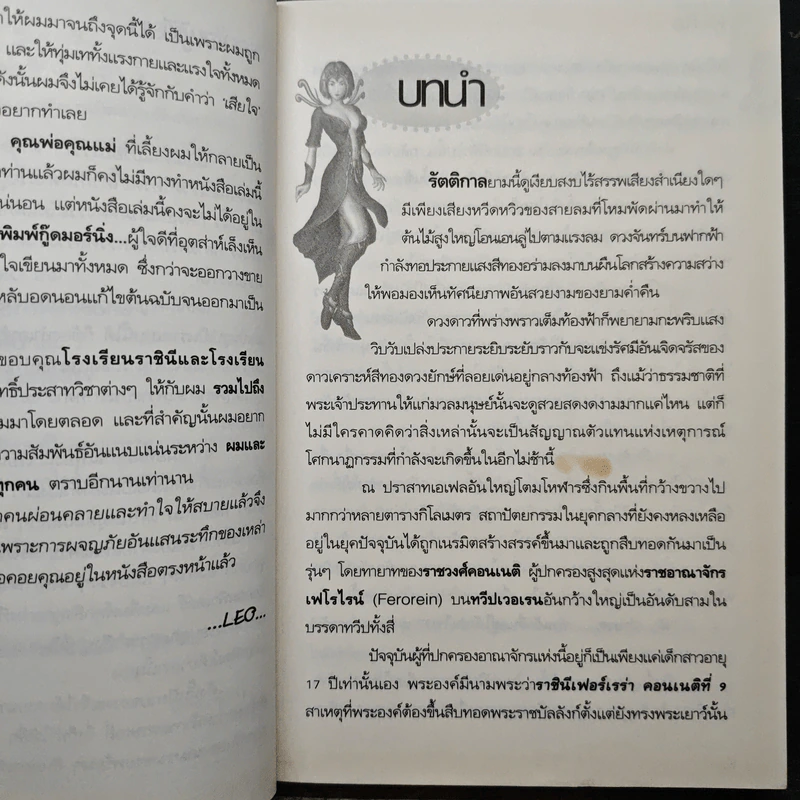 าให้ผมมาจนถึงจุดนี้ได้ เป็นเพราะผมถูก
และให้ทุ่มเททั้งแรงกายและแรงใจทั้งหมด
ดังนั้นผมจึงไม่เคยได้รู้จักกับคำว่า 'เสียใจ'
อยากทำเลย
คุณพ่อคุณแม่ ที่เลี้ยงผมให้กลายเป็น
าท่านแล้วผมก็คงไม่มีทางทำหนังสือเล่มนี้
น่นอน แต่หนังสือเล่มนี้คงจะไม่ได้อยู่ใน
พิมพ์กู๊ดมอร์นิ่ง...ผู้ใจดีที่อุตส่าห์เล็งเห็น
ใจเขียนมาทั้งหมด ซึ่งกว่าจะออกวางขาย
หลับอดนอนแก้ไขต้นฉบับจนออกมาเป็น
ขอบคุณโรงเรียนราชินีและโรงเรียน
ทธิ์ประสาทวิชาต่างๆ ให้กับผม รวมไปถึง
มมาโดยตลอด และที่สำคัญนั้นผมอยาก
วามสัมพันธ์อันแนบแน่นระหว่าง ผมและ
ทุกคน ตราบอีกนานเท่านาน
าคนผ่อนคลายและทำใจให้สบายแล้วจึง
เพราะการผจญภัยอันแสนระทึกของเหล่า
อคอยคุณอยู่ในหนังสือตรงหน้าแล้ว
...LEO...
บทนำ
รัตติกาลยามนี้ดูเงียบสงบไร้สรรพเสียงสำเนียงใดๆ
มีเพียงเสียงหวีดหวิวของสายลมที่โหมพัดผ่านมาทำให้
ต้นไม้สูงใหญ่โอนเอนลู่ไปตามแรงลม ดวงจันทร์บนฟากฟ้า
กำลังทอประกายแสงสีทองอร่ามลงมาบนผืนโลกสร้างความสว่าง
ให้พอมองเห็นทัศนียภาพอันสวยงามของยามค่ำคืน
ดวงดาวที่พร่างพราวเต็มท้องฟ้าก็พยายามกะพริบแสง
วิบวับเปล่งประกายระยิบระยับราวกับจะแข่งรัศมีอันเจิดจรัสของ
ดาวเคราะห์สีทองดวงยักษ์ที่ลอยเด่นอยู่กลางท้องฟ้า ถึงแม้ว่าธรรมชาติที่
พระเจ้าประทานให้แก่มวลมนุษย์นั้นจะดูสวยสดงดงามมากแค่ไหน แต่ก็
ไม่มีใครคาดคิดว่าสิ่งเหล่านั้นจะเป็นสัญญาณตัวแทนแห่งเหตุการณ์
โศกนาฏกรรมที่กำลังจะเกิดขึ้นในอีกไม่ช้านี้
ณ ปราสาทเอเฟลอันใหญ่โตมโหฬารซึ่งกินพื้นที่กว้างขวางไป
มากกว่าหลายตารางกิโลเมตร สถาปัตยกรรมในยุคกลางที่ยังคงหลงเหลือ
อยู่ในยุคปัจจุบันได้ถูกเนรมิตสร้างสรรค์ขึ้นมาและถูกสืบทอดกันมาเป็น
รุ่นๆ โดยทายาทของราชวงศ์คอนเนติ ผู้ปกครองสูงสุดแห่งราชอาณาจักร
เฟโรไรน์ (Ferorein) บนทวีปเวอเรนอันกว้างใหญ่เป็นอันดับสามใน
บรรดาทวีปทั้งสี่
ปัจจุบันผู้ที่ปกครองอาณาจักรแห่งนี้อยู่ก็เป็นเพียงแค่เด็กสาวอายุ
17 ปีเท่านั้นเอง พระองค์มีนามพระว่าราชินีเฟอร์เรร่า คอนเนติที่ 9
สาเหตุที่พระองค์ต้องขึ้นสืบทอดพระราชบัลลังก์ตั้งแต่ยังทรงพระเยาว์นั้น